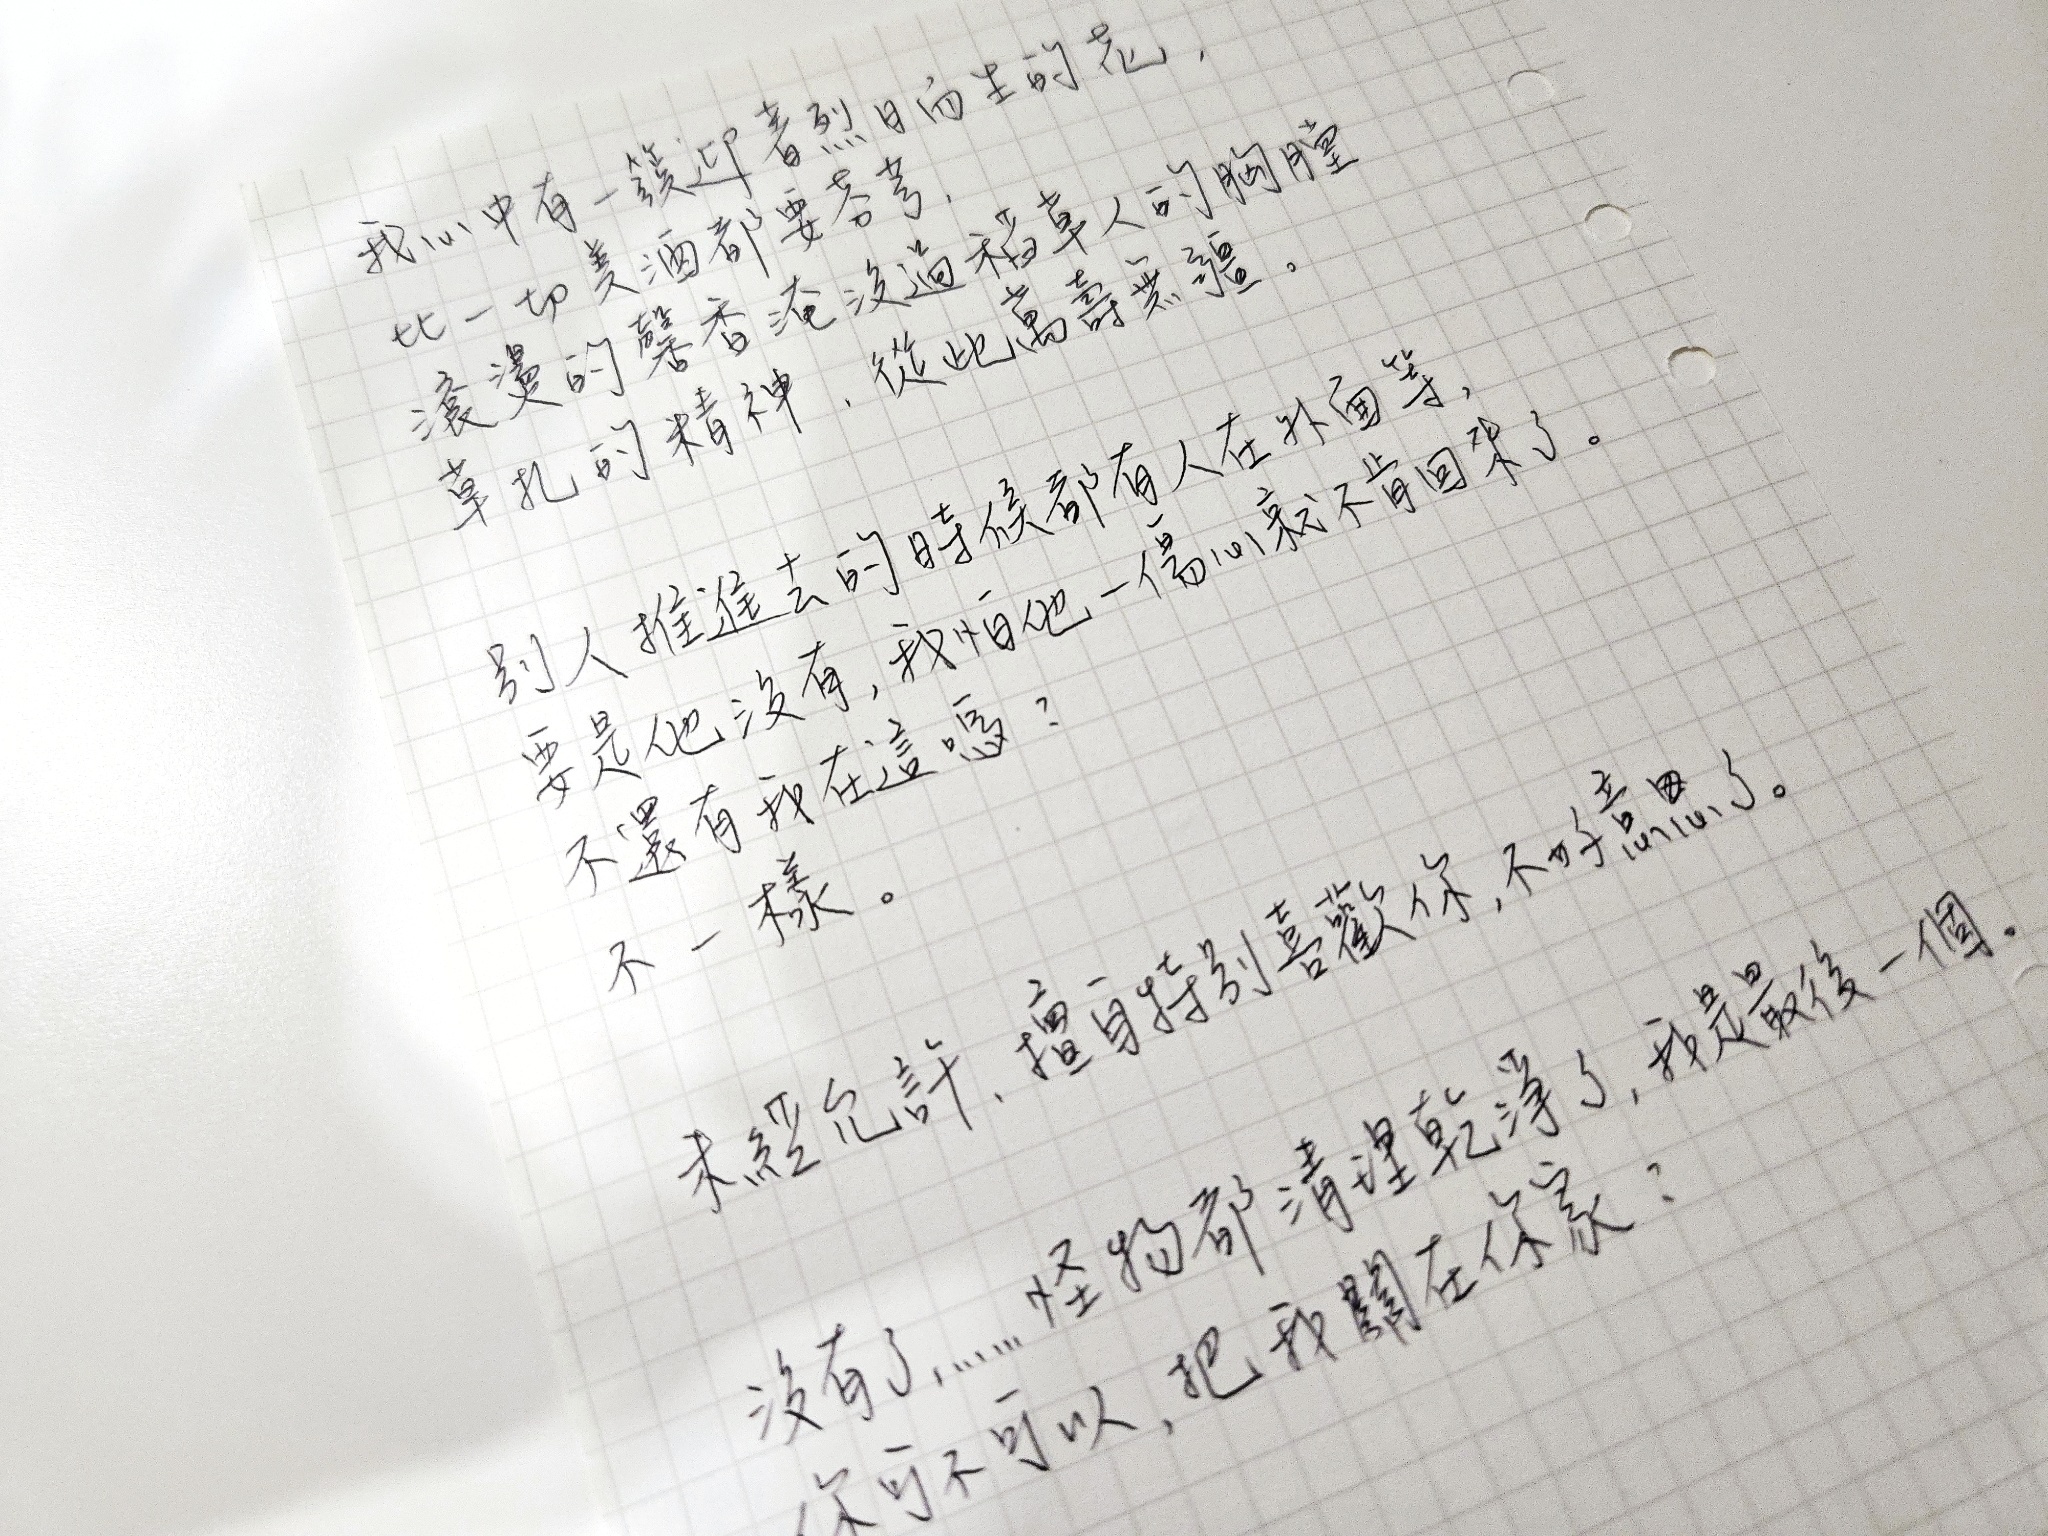 我心中有一簇迎著烈日而生的花，
比一切美酒都要芬芳，
滾燙的馨香淹沒過稻草人的胸膛
草扎的精神，從此萬壽無疆。
別人推進去的時候都有人在外面等，
要是他沒有，我怕他一傷心就不肯回來了。
不還有我在這嗎？
不一樣。
未經允許、擅自特別喜歡你，不好意思了。
沒有了……怪物都清理乾淨了，我是最後一個。
你可不可以，把我關在你家？